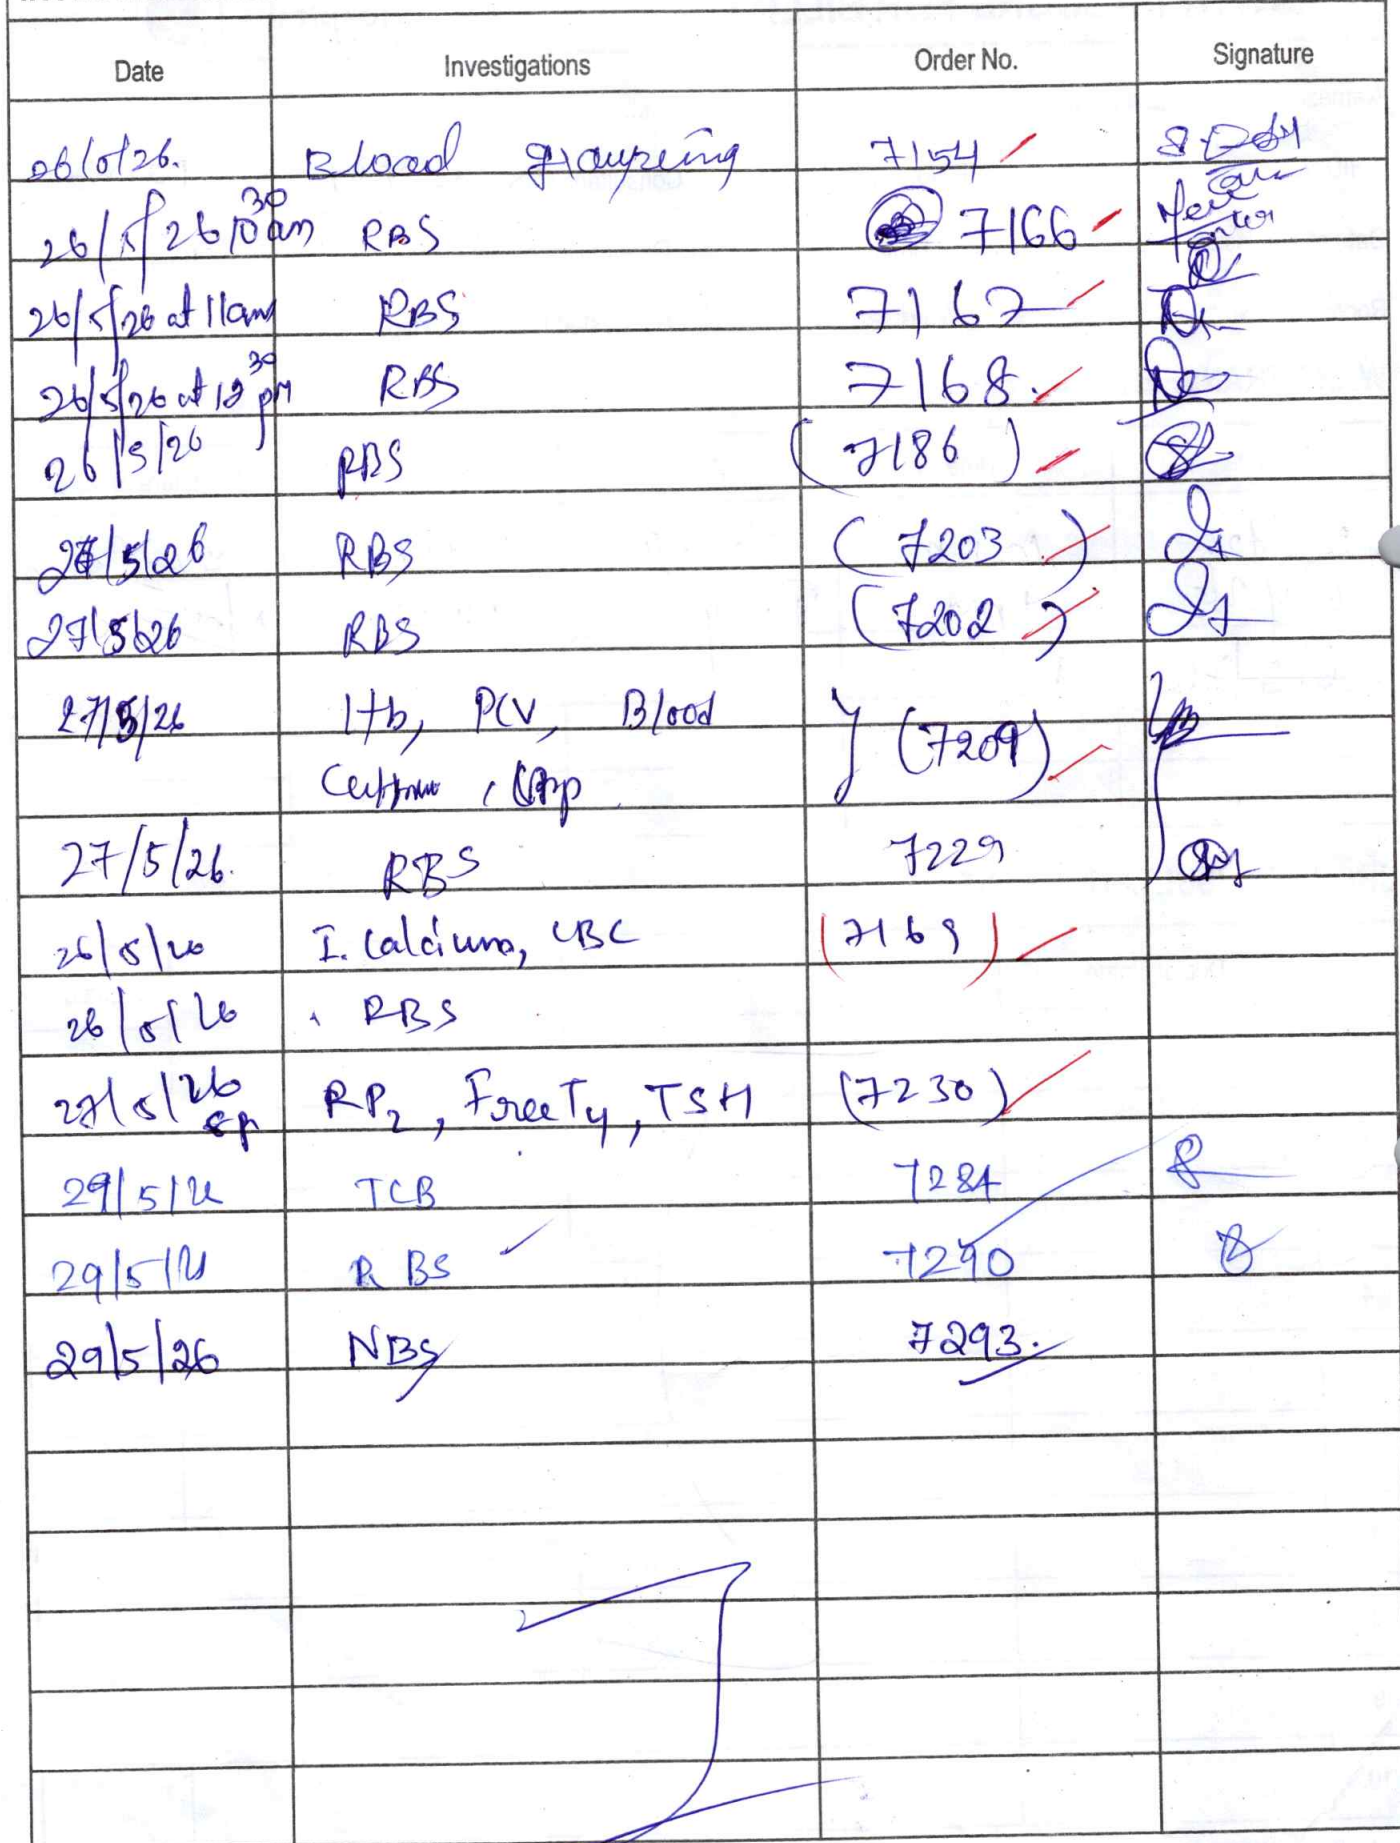 Date Investigations Order No. Signature
26/5/26. Blood grouping 7154
26/5/26 10 30 am RBS 7166
26/5/26 at 11am RBS 7167
26/5/26 at 12 30 pm RBS 7168.
26/5/26 RBS (7186)
27/5/26 RBS (7203)
27/5/26 RBS (7202)
27/5/26 Hb, PCV, Blood (7209)
, CRP
27/5/26. RBS 7229
26/5/26 I. Calcium, CBC (7169)
26/5/26 RBS
27/5/26 RP2, Free T4, TSH (7230)
29/5/26 TCB 7284
29/5/26 RBS 7290
29/5/26 NBS 7293.